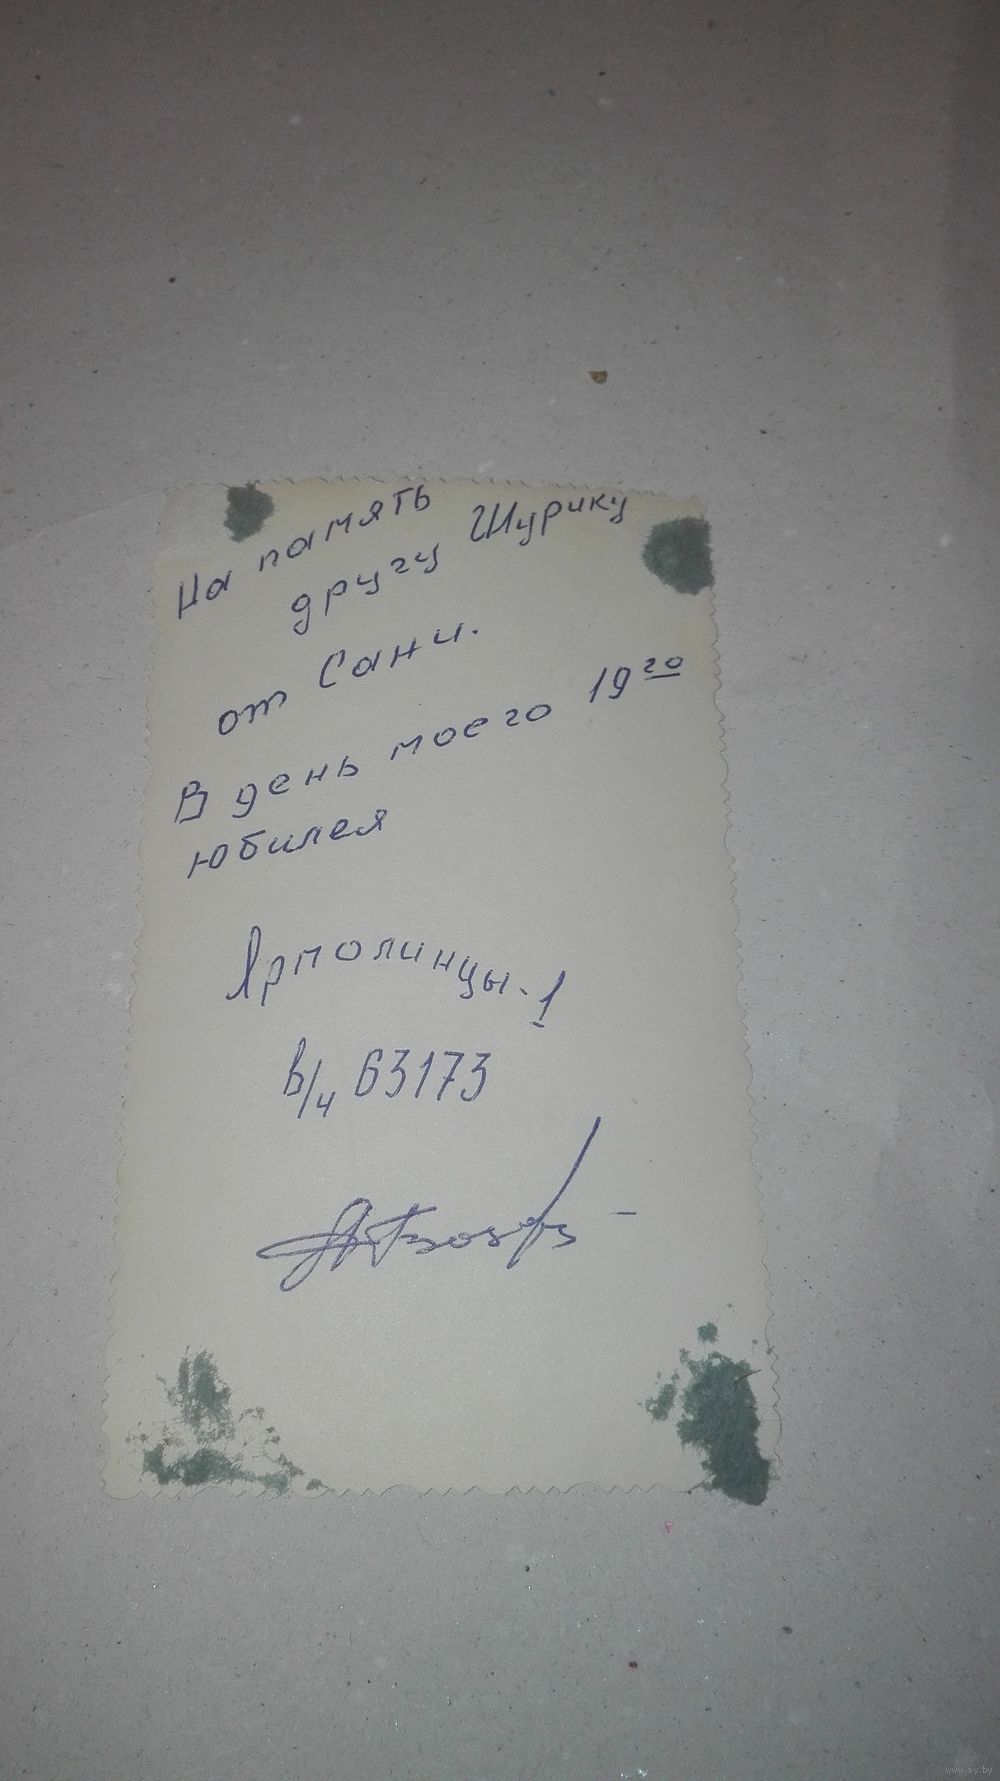 На память
другу Шурику
от Сани.
В день моего 19го
юбилея
Ярмолинцы-1
в/ч 63173
www.ay.by